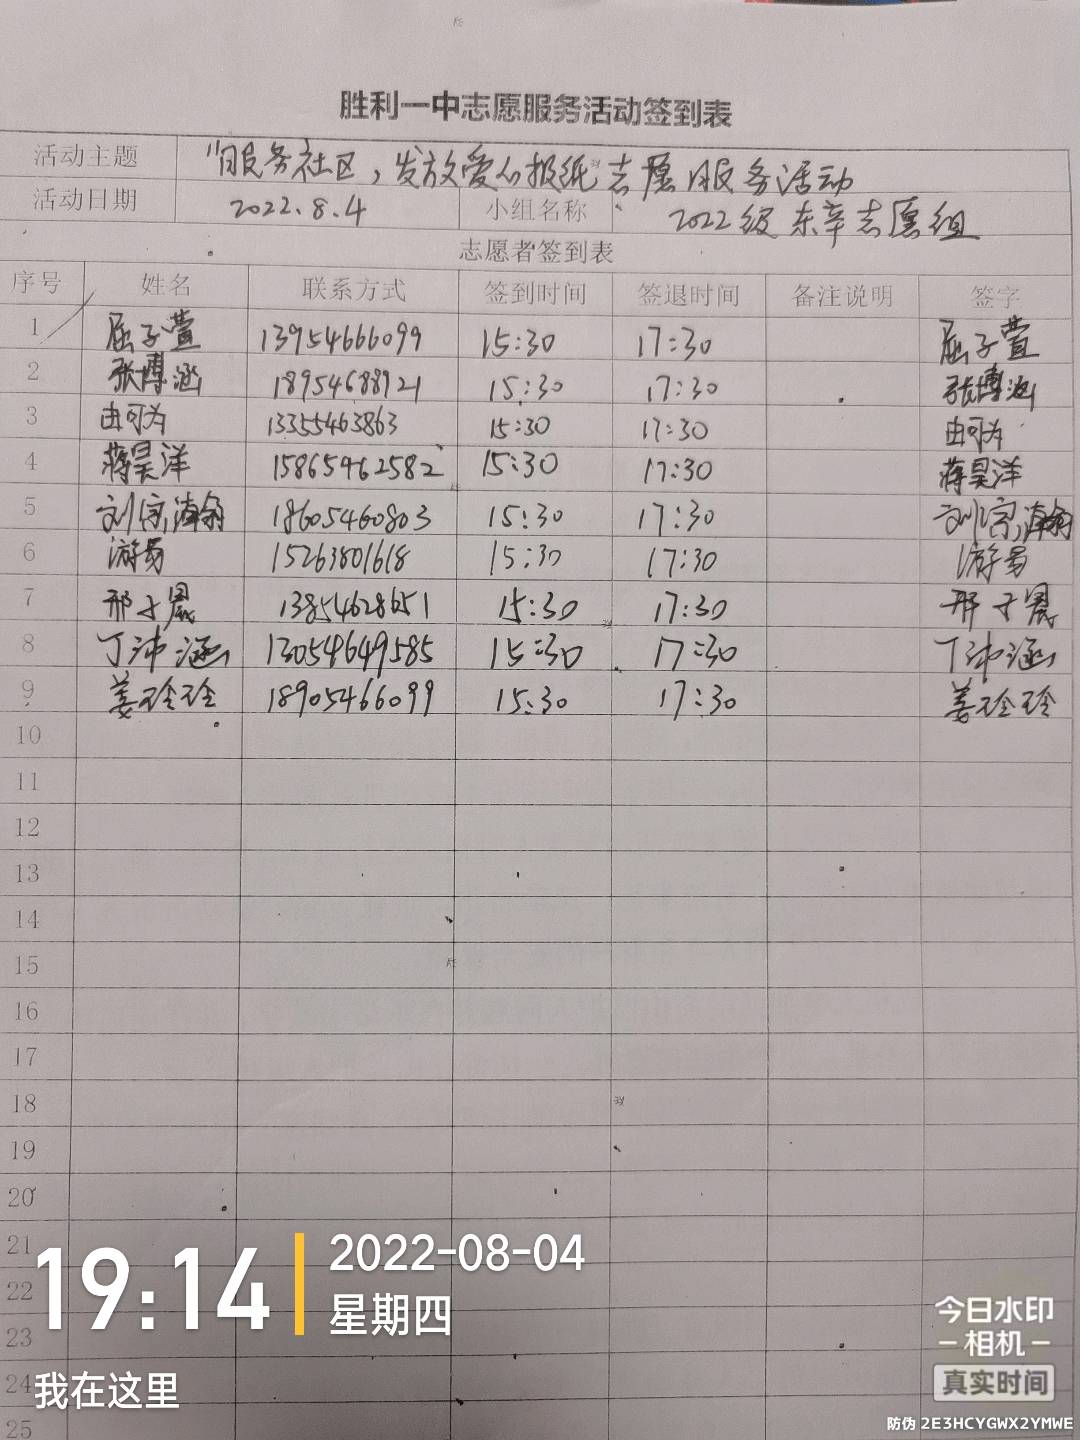 胜利一中志愿服务活动签到表
活动主题 "服务社区,发放爱心报纸"志愿服务活动
活动日期 2022.8.4 小组名称 2022级东辛志愿组
志愿者签到表
序号 姓名 联系方式 签到时间 签退时间 备注说明 签字
1 屈子萱 13954666099 15:30 17:30 屈子萱
2 张博涵 18954688921 15:30 17:30 张博涵
3 由可为 13355463863 15:30 17:30 由可为
4 蒋昊洋 15865462582 15:30 17:30 蒋昊洋
5 刘宗瀚 18605460803 15:30 17:30 刘宗瀚
6 游易 15263801618 15:30 17:30 游易
7 邢子晨 13854628651 15:30 17:30 邢子晨
8 丁沛涵 13054649585 15:30 17:30 丁沛涵
9 姜玲玲 18905466099 15:30 17:30 姜玲玲
10
11
12
13
14
15
16
17
18
19
20
21
22
23
24
25
19:14 2022-08-04
星期四
我在这里
今日水印
相机
真实时间
防伪 2E3HCYGWX2YMWE